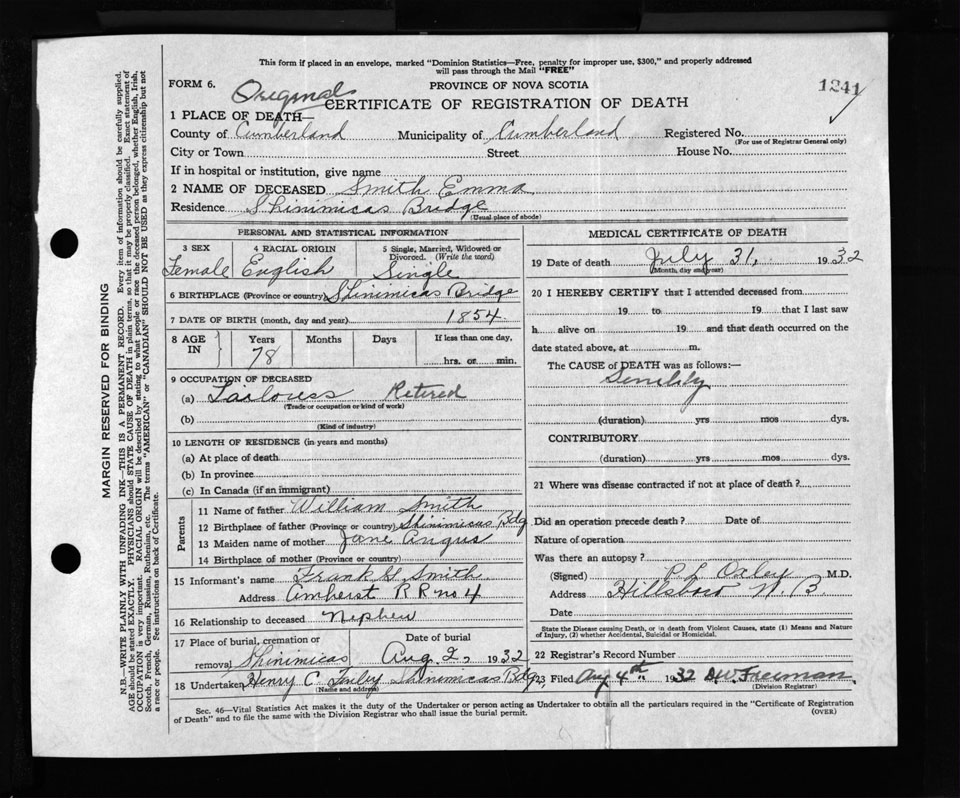 This form if placed in an envelope, marked "Dominion Statistics—Free, penalty for improper use, $300," and properly addressed
will pass through the Mail "FREE"
FORM 6.
PROVINCE OF NOVA SCOTIA
1241
Original
CERTIFICATE OF REGISTRATION OF DEATH
1 PLACE OF DEATH—
County of Cumberland Municipality of Cumberland Registered No.
(For use of Registrar General only)
City or Town Street House No.
If in hospital or institution, give name
2 NAME OF DECEASED Smith Emma
Residence Shinimicas Bridge
(Usual place of abode)
PERSONAL AND STATISTICAL INFORMATION
3 SEX 4 RACIAL ORIGIN 5 Single, Married, Widowed or Divorced. (Write the word)
Female English Single
6 BIRTHPLACE (Province or country) Shinimicas Bridge
7 DATE OF BIRTH (month, day and year) 1854
8 AGE IN Years Months Days If less than one day,
78 hrs. or min.
9 OCCUPATION OF DECEASED
(a) Tailoress Retired
(Trade or occupation or kind of work)
(b)
(Kind of industry)
10 LENGTH OF RESIDENCE (in years and months)
(a) At place of death
(b) In province
(c) In Canada (if an immigrant)
Parents
11 Name of father William Smith
12 Birthplace of father (Province or country) Shinimicas Bdg
13 Maiden name of mother Jane Angus
14 Birthplace of mother (Province or country)
15 Informant's name Frank G. Smith
Address Amherst R R no 4
16 Relationship to deceased Nephew
17 Place of burial, cremation or Date of burial
removal Shinimicas Aug 2, 1932
18 Undertaker Henry C. Finlay Shinimicas Bdg
(Name and address)
MEDICAL CERTIFICATE OF DEATH
19 Date of death July 31, 1932
(Month, day and year)
20 I HEREBY CERTIFY that I attended deceased from
19 to 19 that I last saw
h alive on 19 and that death occurred on
date stated above, at m.
The CAUSE of DEATH was as follows:—
Senility
(duration) yrs mos dys.
CONTRIBUTORY
(duration) yrs mos dys.
21 Where was disease contracted if not at place of death?
Did an operation precede death? Date of
Nature of operation
Was there an autopsy?
(Signed) P L Oxley M.D.
Address Hillsboro N. B
Date
State the Disease causing Death, or in death from Violent Causes, state (1) Means and Nature
of Injury, (2) whether Accidental, Suicidal or Homicidal.
22 Registrar's Record Number
23 Filed Aug 4th 1932 D.W. Freeman
(Division Registrar)
Sec. 46—Vital Statistics Act makes it the duty of the Undertaker or person acting as Undertaker to obtain all the particulars required in the "Certificate of Registration
of Death" and to file the same with the Division Registrar who shall issue the burial permit.
(OVER)
MARGIN RESERVED FOR BINDING
N.B.—WRITE PLAINLY WITH UNFADING INK—THIS IS A PERMANENT RECORD. Every item of information should be carefully supplied.
AGE should be stated EXACTLY. PHYSICIANS should STATE CAUSE OF DEATH in plain terms, so that it may be properly classified. Exact statement of
OCCUPATION is very important. RACIAL ORIGIN will be described by stating to what people or race the deceased person belonged, whether English, Irish,
Scotch, French, German, Russian, Ruthenian, etc. The terms "AMERICAN" or "CANADIAN" SHOULD NOT BE USED as they express citizenship but not
a race or people. See instructions on back of Certificate.